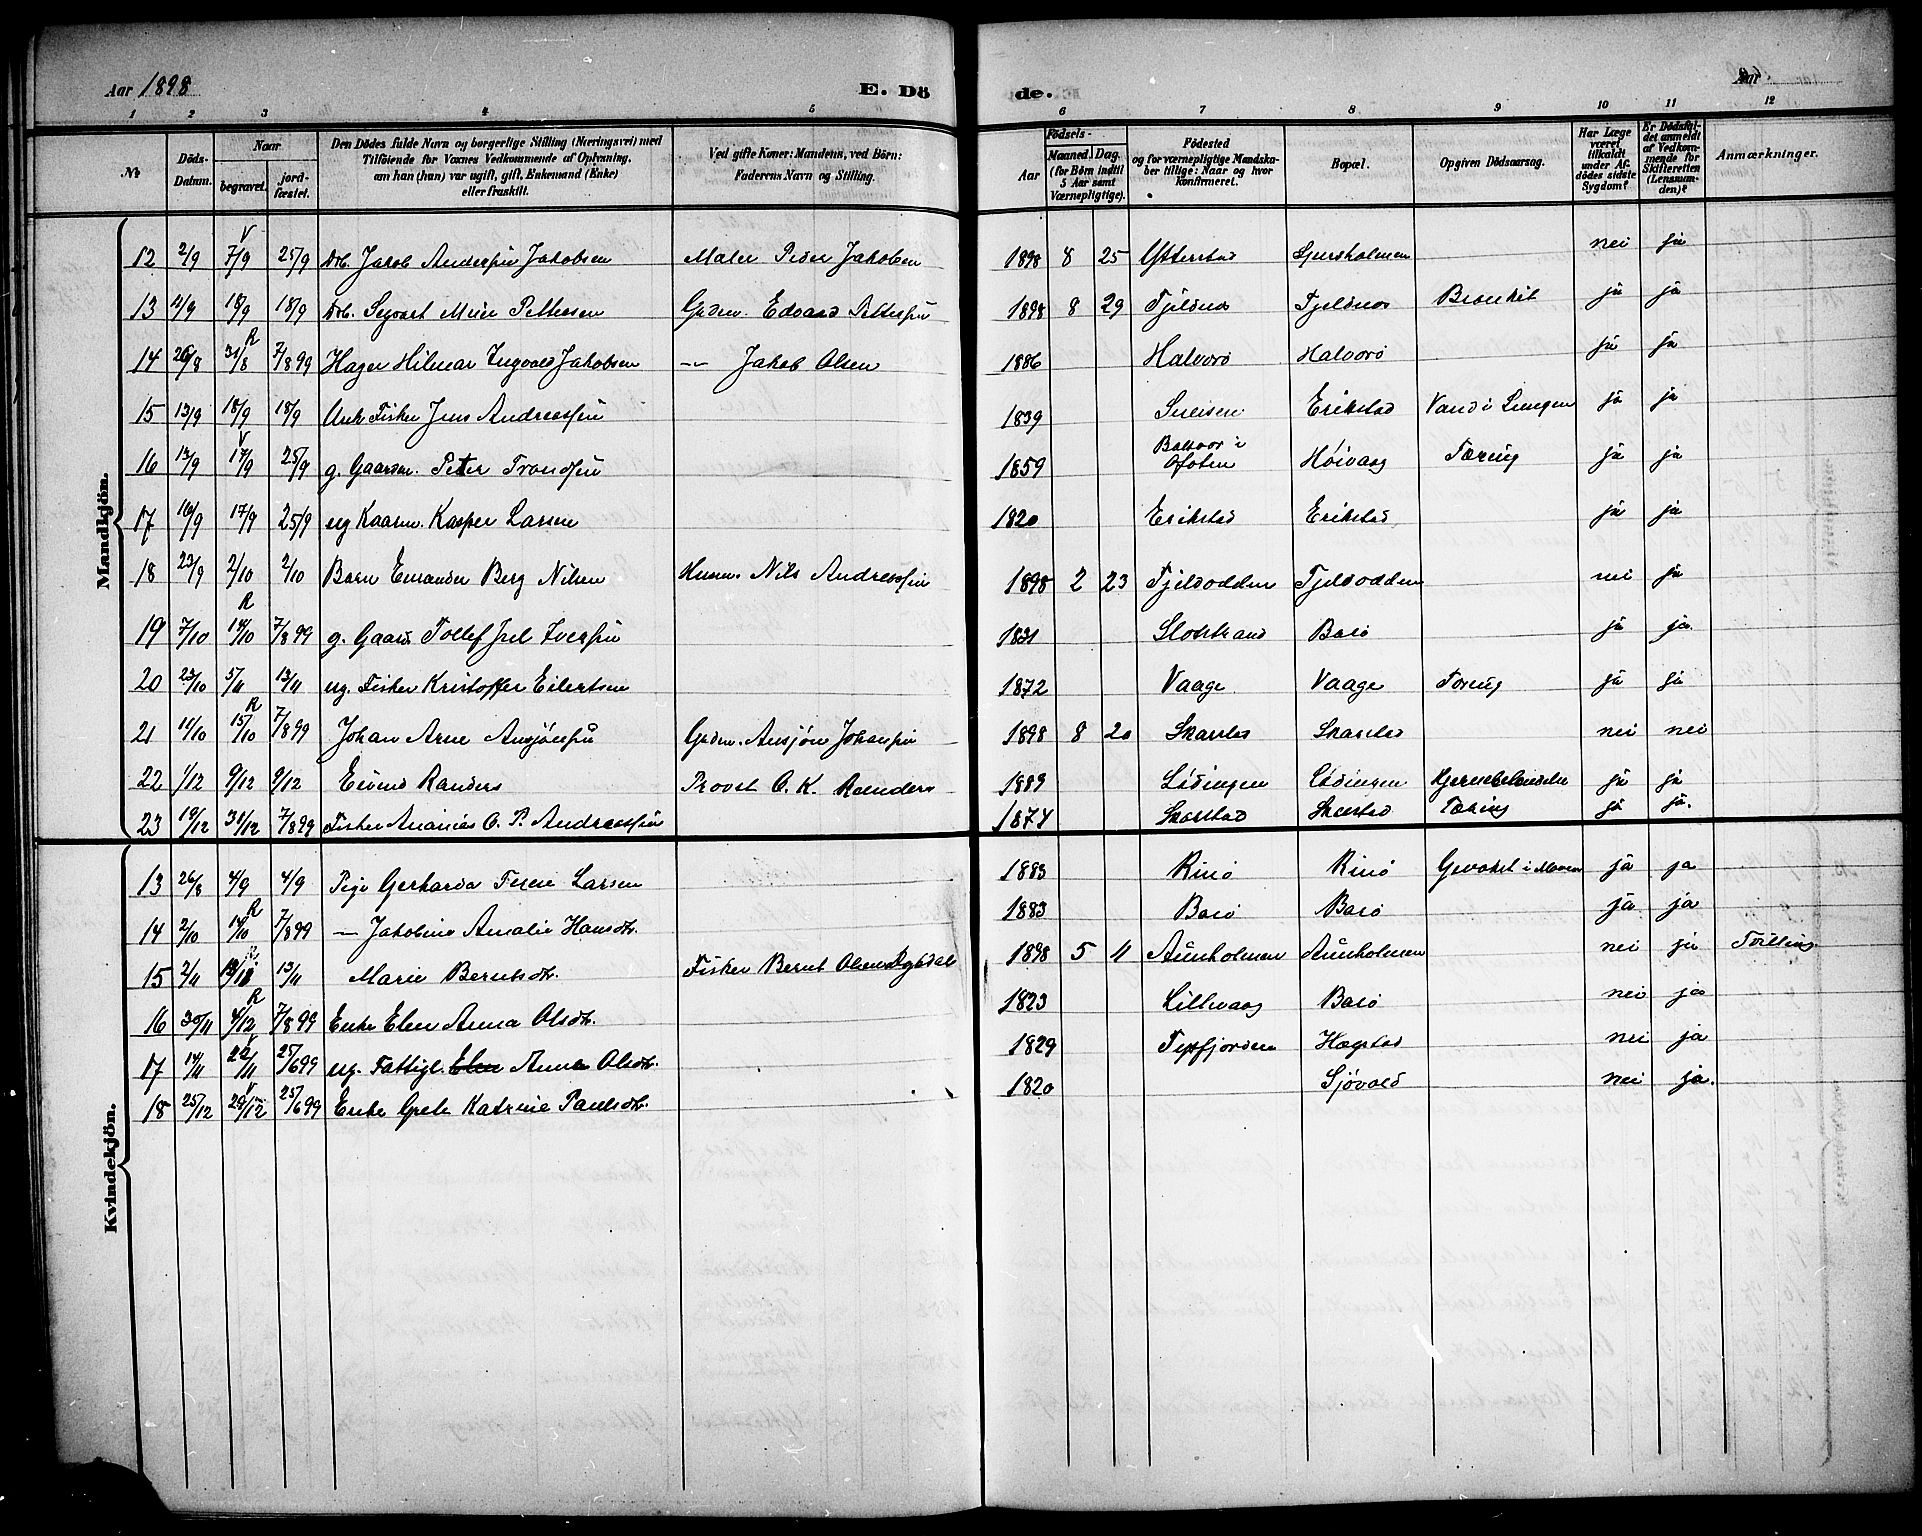 Aar 1898 E. Dö de. Aar
1 2 3 4 5 6 7 8 9 10 11 12
№ Döds-Datum. Naar begravet. jordfæstet. Den Dödes fulde Navn og borgerlige Stilling (Næringsvei) med Tilföiende for Voxnes Vedkommende af Oplysning, om han (hun) var ugift, gift, Enkemand (Enke) eller fraskilt. Ved gifte Koner: Mandens, ved Börn: Faderens Navn og Stilling. Födsels- Aar Maaned. Dag. (for Börn indtil 5 Aar samt Værnepligtige). Födested og for værnepligtige Mandskaber tillige: Naar og hvor konfirmeret. Bopæl. Opgiven Dödsaarsag. Har Læge været tilkaldt under Afdödes sidste Sygdom? Er Dödsfaldet anmeldt af Vedkommende for Skifteretten (Lensmanden)? Anmærkninger.
Mandkjön.
12 2/9 V 7/9 25/9 Drb. Jakob Jakobsen Maler Peder Jakobsen 1898 8 25 Ytterstad nei ja
13 4/9 18/9 18/9 Drb. Pettersen Gadm. Edvard Pettersen 1898 8 29 Tjeldnes Tjeldnes Bronkit ja ja
14 26/8 R 31/8 7/8 99 Hilmar Ingvald Jakobsen — Jakob Olsen 1886 Halvorö Halvorö ja ja
15 13/9 18/9 18/9 Fisker Jens Andreassen 1839 Erikstad Vand i Lungen ja ja
16 13/9 V 17/9 25/9 g. Gaardm. Peter Trondsen 1859 Ballvor i Ofoten Höivaag Tæring ja ja
17 10/9 17/9 25/9 ug Kaarm. Kasper Larsen 1820 Erikstad Erikstad ja ja
18 23/9 2/10 2/10 Barn Berg Nilsen Husm. Nils Andreassen 1898 2 23 Tjeldodden Tjeldodden nei ja
19 7/10 R 14/10 7/8 99 g. Gaard. Tollef Iversen 1831 Barö ja ja.
20 23/10 5/11 13/11 ug. Fisker Kristoffer Eilertsen 1872 Vaage Vaage Tæring ja ja
21 11/10 R 15/10 7/8 99 Johan Arne Ansjönsen Gadm. Ansjön Johansen 1898 8 20 Skarstad Skarstad nei nei
22 1/12 9/12 9/12 Eivind Randers Provst O. K. Randers 1889 Lödingen Lödingen ja ja
23 19/12 31/12 7/8 99 Fisker Ananias O. P. Andreassen 1874 Skarstad Skarstad Tæring ja ja.
Kvindekjön.
13 26/8 4/9 4/9 Pige Gerharda Larsen 1883 Rinö Rinö ja ja
14 2/10 R 14/10 7/8 99 — Jakobine Amalie Hansdtr. 1883 Barö Barö ja ja
15 2/11 13/11 Marie Berntsdtr. Fisker Bernt Olsen 1898 5 11 Aunholmen Aunholmen nei ja Tvilling
16 30/11 R 4/12 7/8 99 Enke Elen Anna Olsdtr. 1823 Lillevaag Barö nei ja
17 14/11 V 22/11 25/6 99 ug. Fattigl. Elen Anna Olsdtr. 1829 Hagstad nei ja
18 25/12 V 29/12 25/6 99 Enke Grete Katrine Paulsdtr. 1820 Sjövold nei ja.